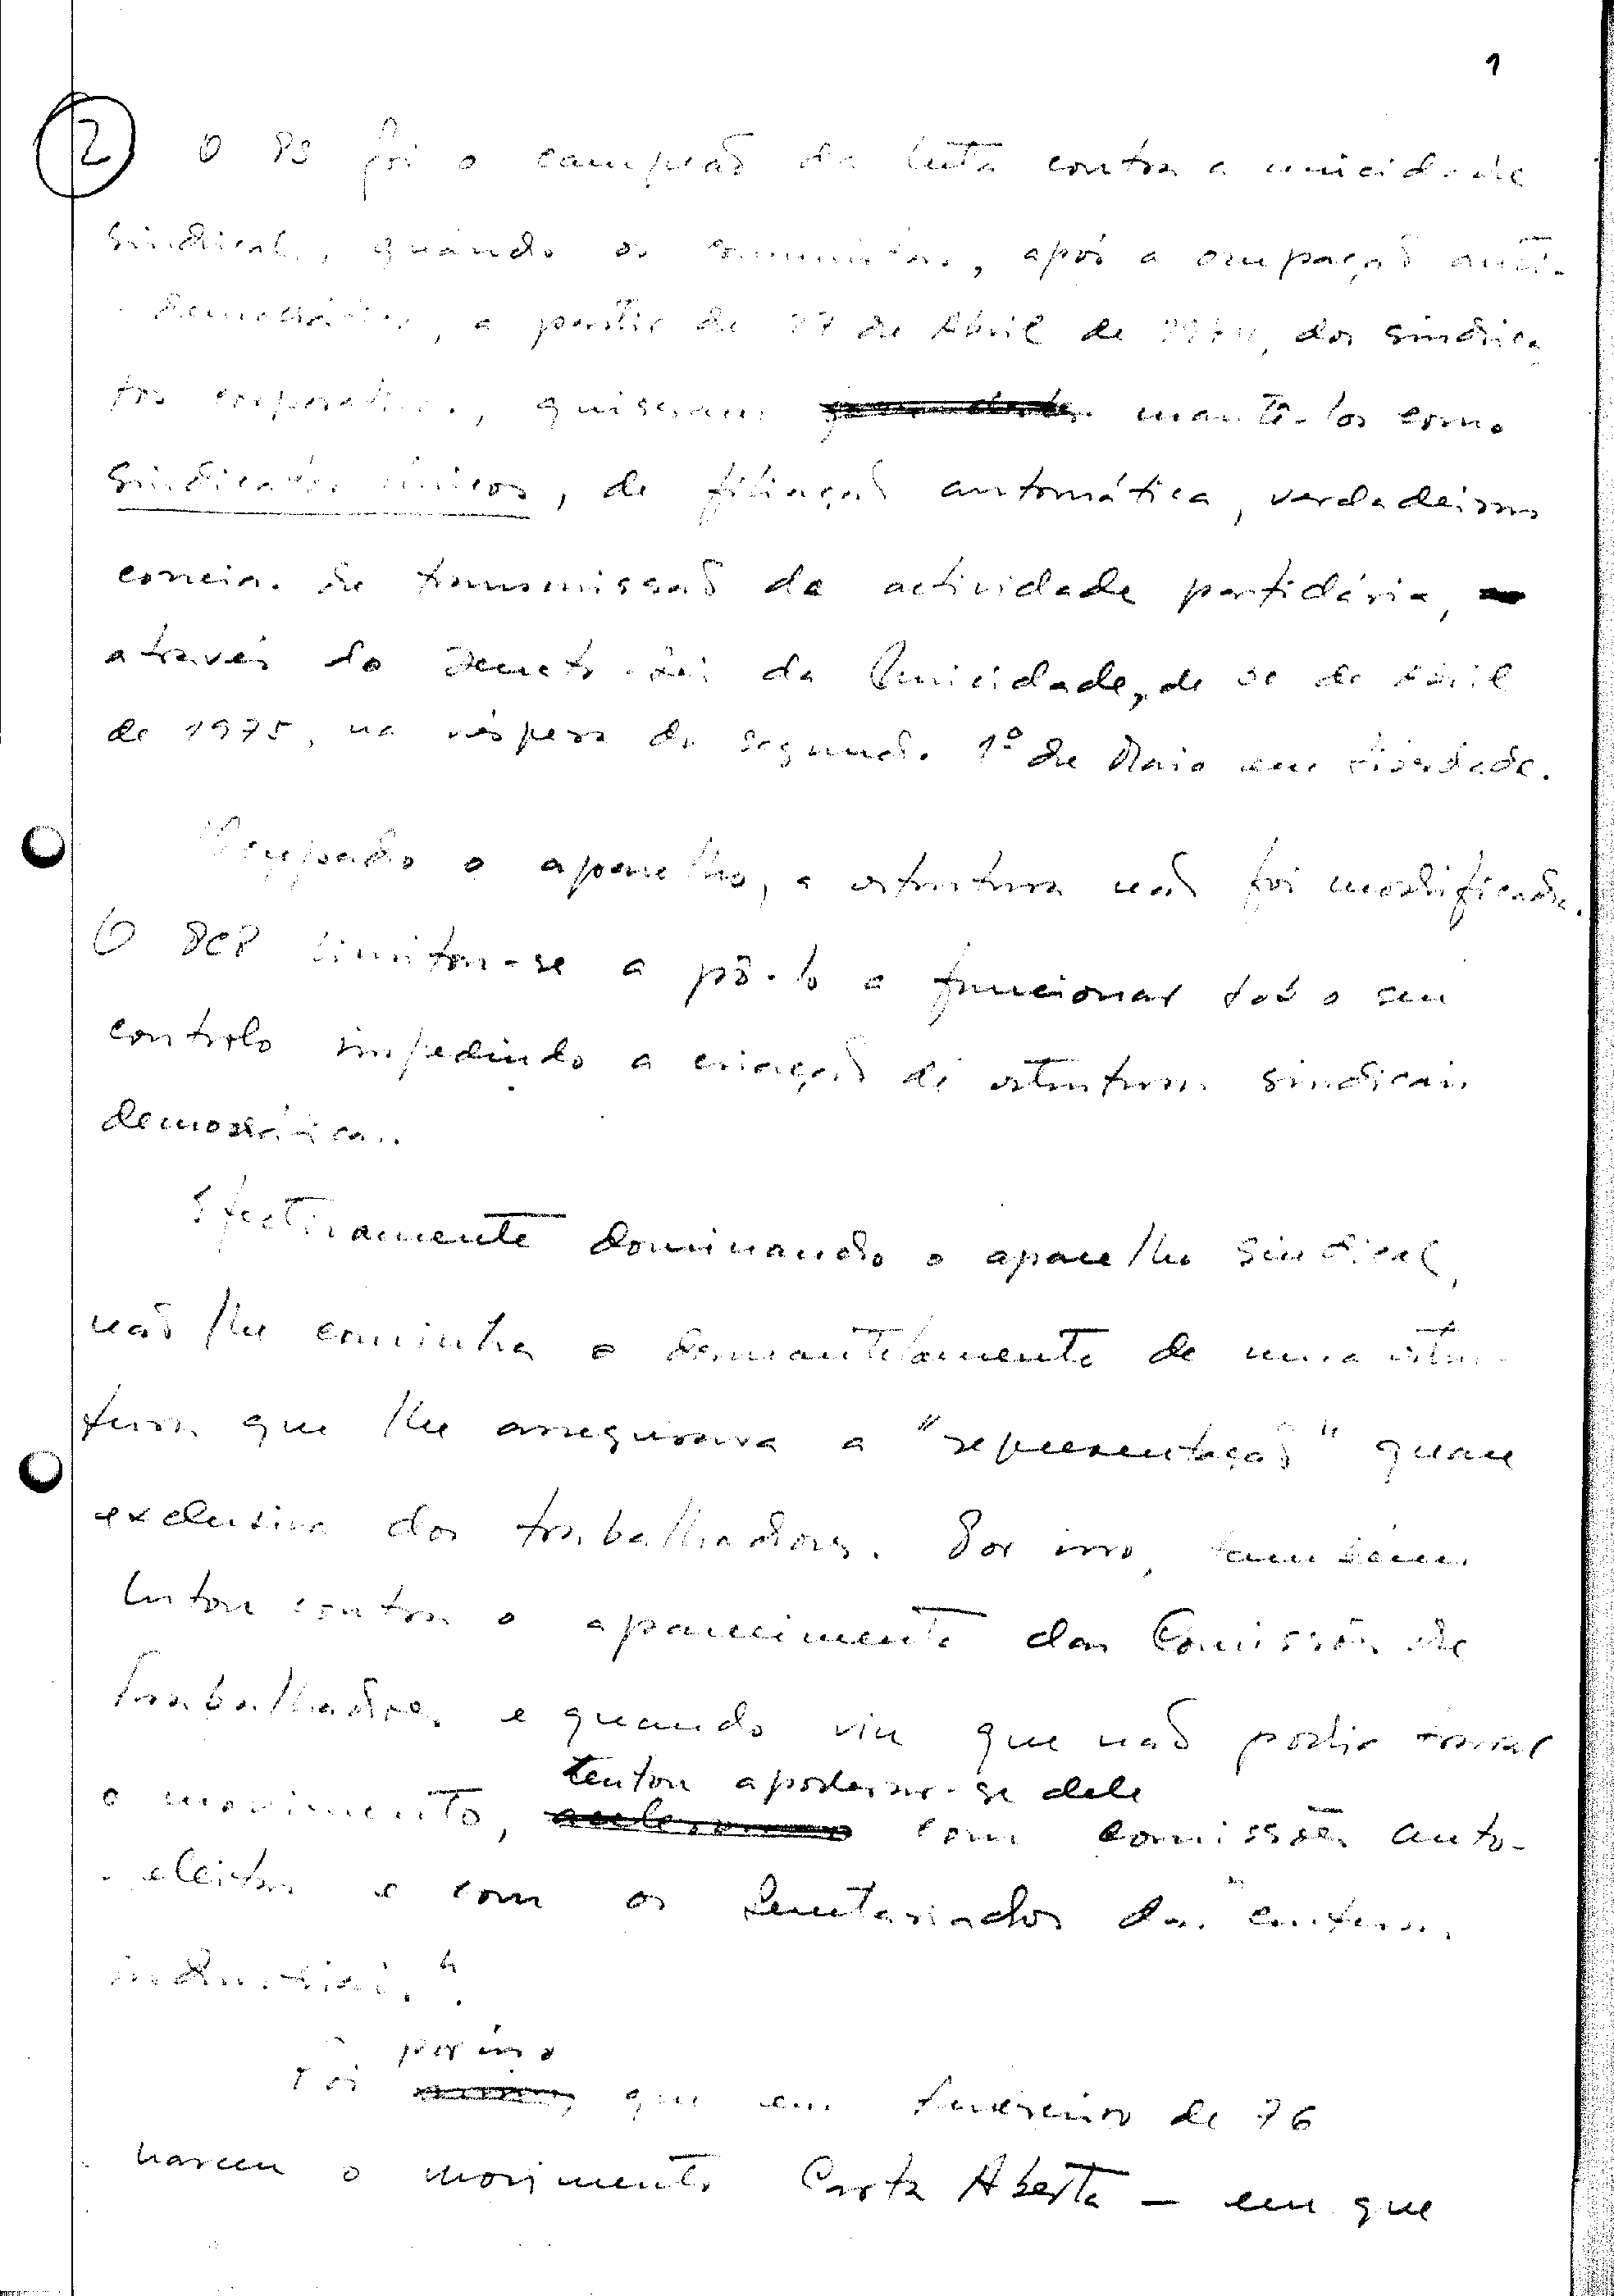 1
2 O PS foi o campeão da luta contra a unicidade
sindical, quando os comunistas, após a ocupação anti-
-democrática, a partir de 27 de Abril de 1974, dos sindica
tos corporativos, quiseram mantê-los como
sindicatos únicos, de filiação automática, verdadeiras
correias de transmissão da actividade partidária,
através do Decreto-Lei da Unicidade, de 30 de Abril
de 1975, na véspera do segundo 1º de Maio em liberdade.
Ocupado o aparelho, a estrutura não foi modificada.
O PCP limitou-se a pô-lo a funcionar sob o seu
controlo impedindo a criação de estruturas sindicais
democráticas.
Efectivamente dominando o aparelho sindical,
não lhe convinha o desmantelamento de uma estru-
tura que lhe assegurava a "representação" quase
exclusiva dos trabalhadores. Por isso, também
lutou contra o aparecimento das Comissões de
Trabalhadores e quando viu que não podia travar
o movimento, tentou apoderar-se dele com comissões auto-
-eleitas e com os Secretariados das "cinturas
industriais".
Foi por isso que em Fevereiro de 76
nasceu o movimento Carta Aberta — em que